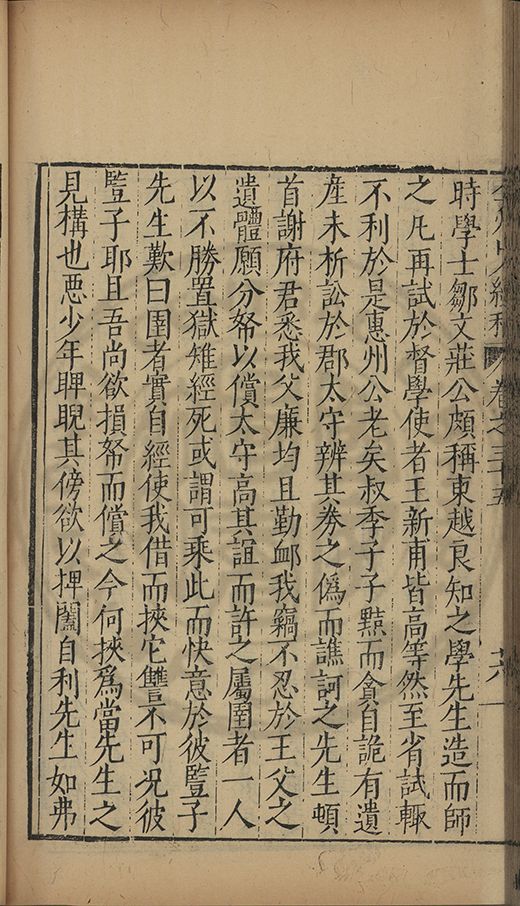 時學士鄒文莊公頗稱東越良知之學先生造而師
之凡再試於督學使者王新甫皆高等然至省試輒
不利於是惠州公老矣叔季子子黠而貪自詭有遺
產未析訟於郡太守辨其券之偽而譙訶之先生頓
首謝府君悉我父廉均且勤衈我竊不忍於王父之
遺體願分帑以償太守高其誼而許之屬圉者一人
以不勝置獄雉經死或謂可乘此而快意於彼豎子
先生歎曰圉者實自經使我借而挾它讐不可况彼
豎子耶且吾尚欲損帑而償之今何挾爲當先生之
見構也惡少年睥睨其傍欲以捭闔自利先生如弗
卷之三十五